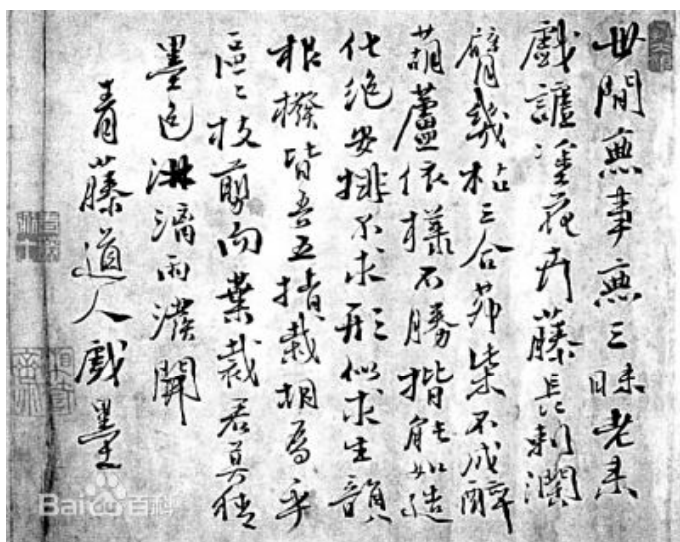 世間無事無三昧老来
戲謔塗花卉藤長刺闊
臂幾枯三合茆柴不成醉
葫蘆依樣不勝揩能如造
化絶安排不求形似求生韻
根撥皆吾五指栽胡為乎
區〻枝剪而葉裁君莫猜
墨色淋漓雨潑開
青藤道人戲墨
Baidu百科